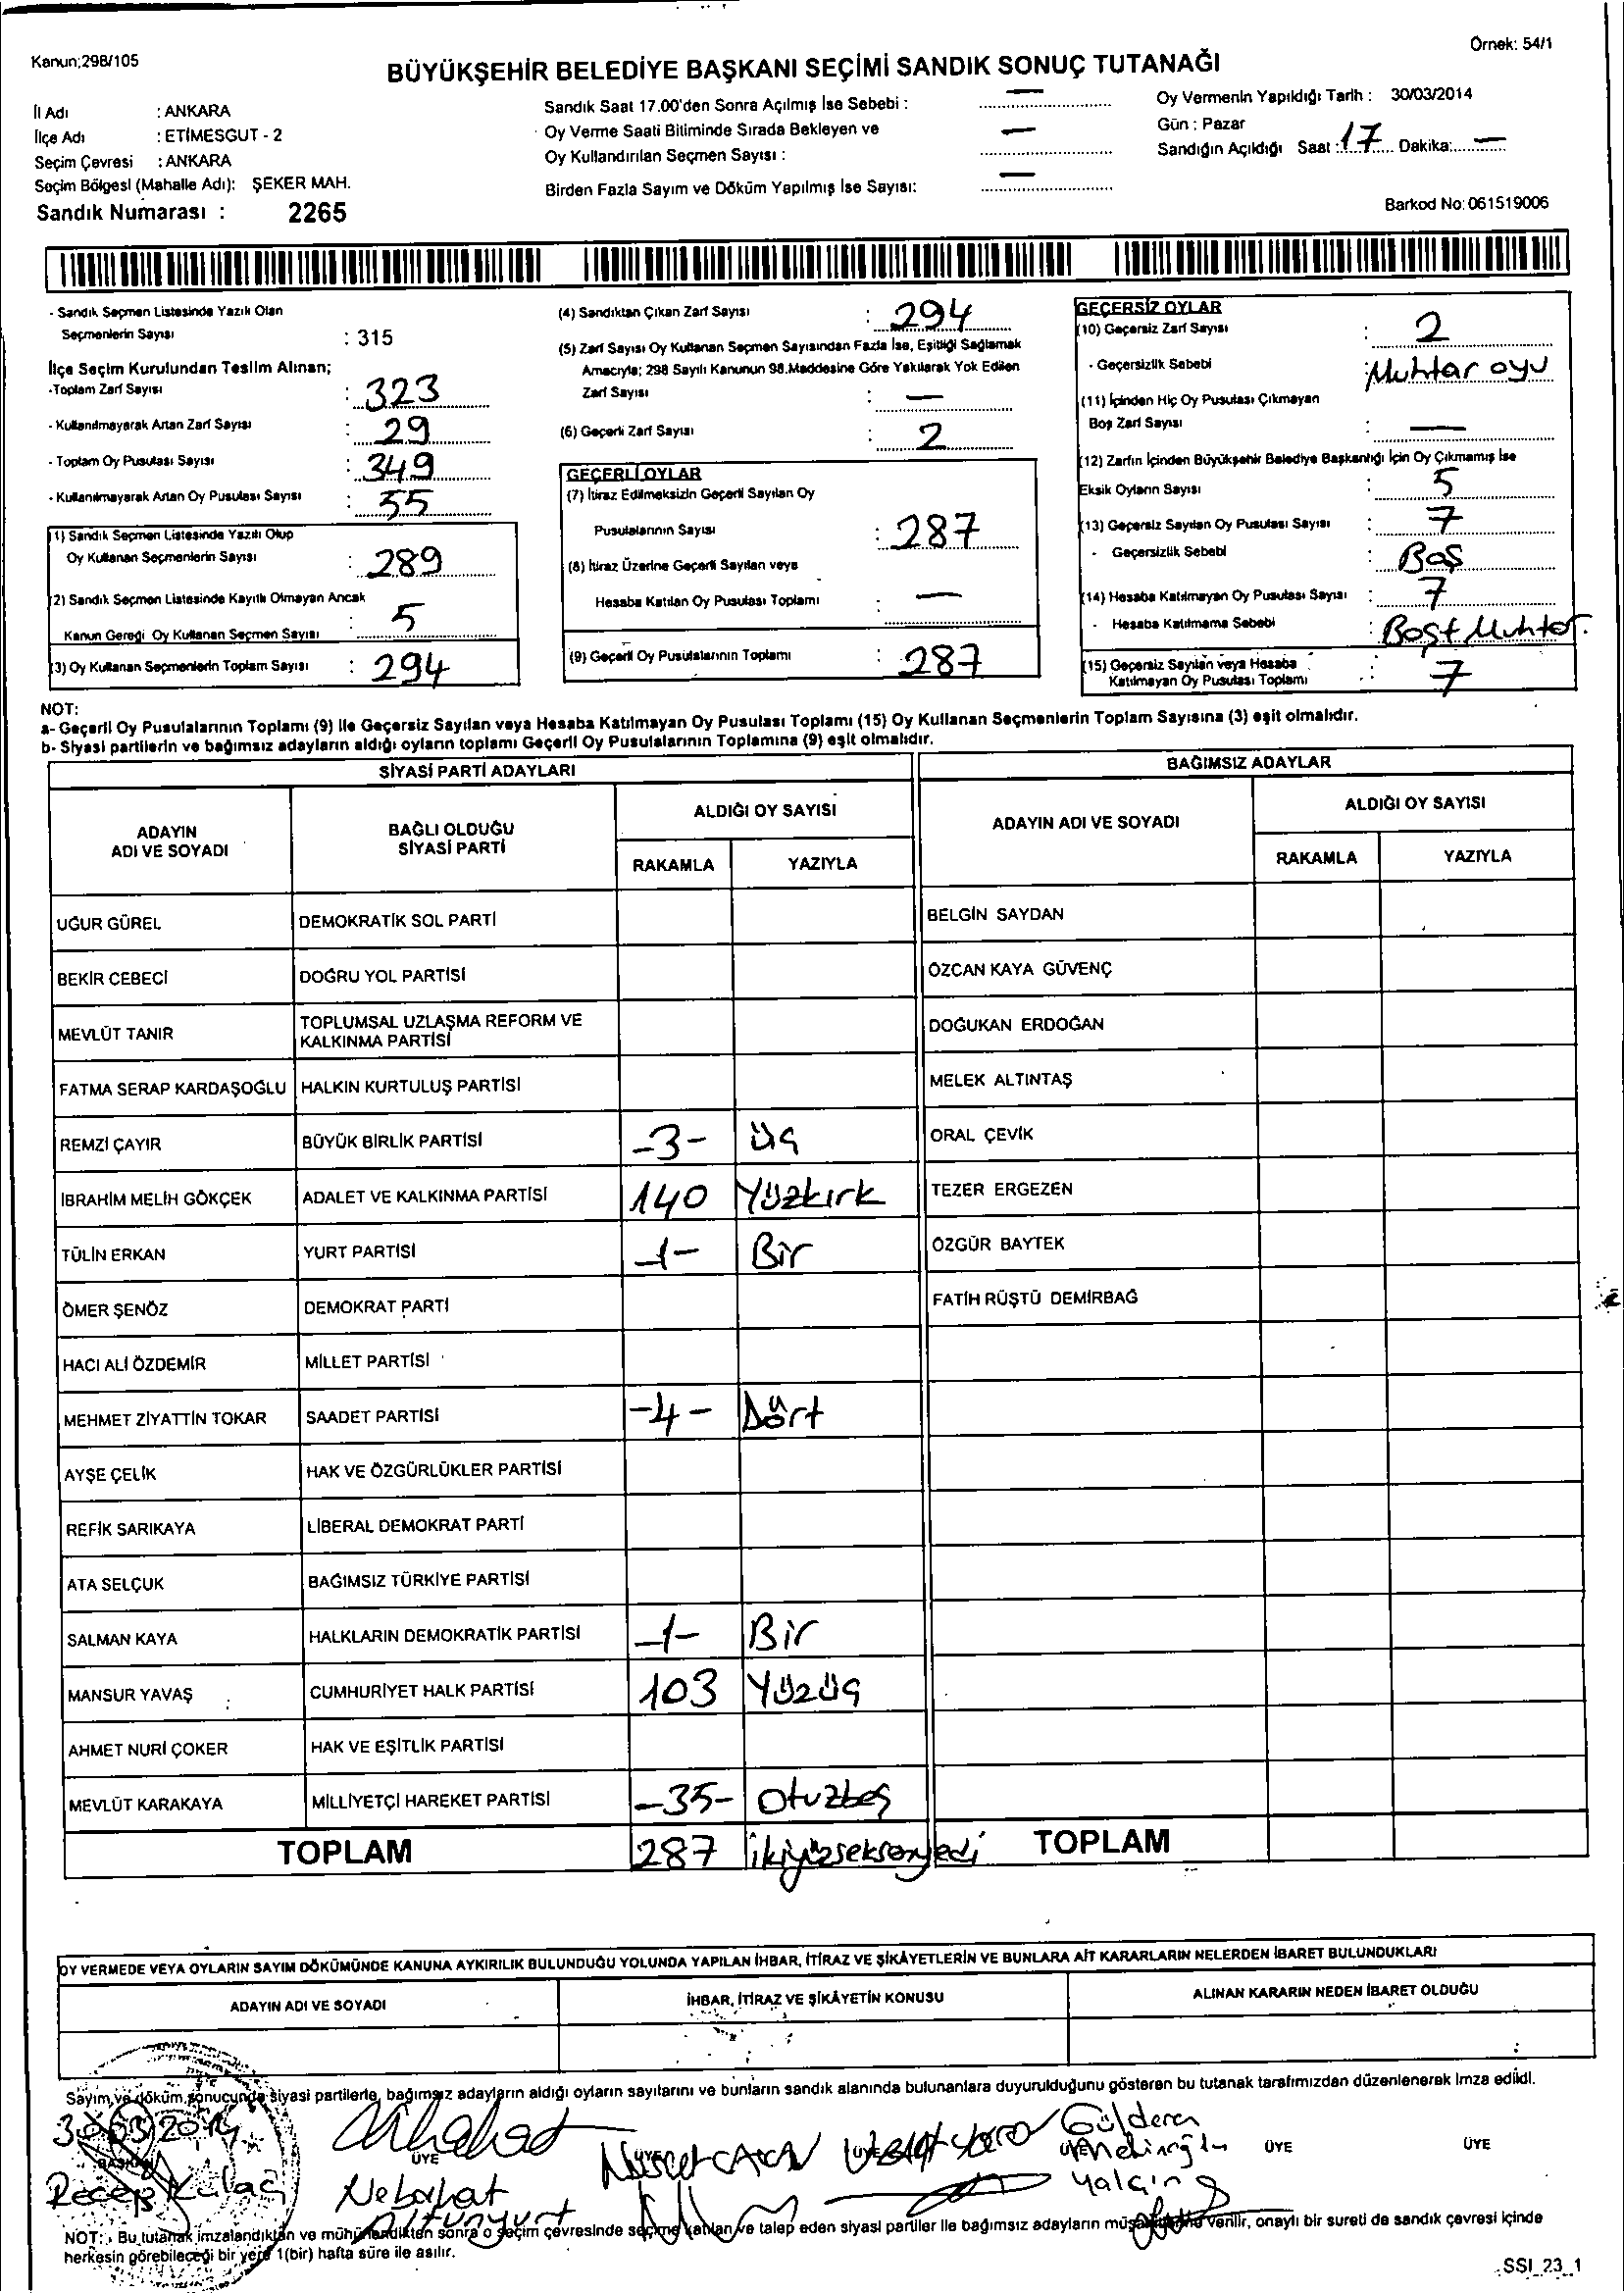 Örnek: 54/1
Kanun;298/105
BÜYÜKŞEHİR BELEDİYE BAŞKANI SEÇİMİ SANDIK SONUÇ TUTANAĞI
İl Adı : ANKARA
İlçe Adı : ETİMESGUT - 2
Seçim Çevresi : ANKARA
Seçim Bölgesi (Mahalle Adı): ŞEKER MAH.
Sandık Numarası : 2265
Sandık Saat 17.00'den Sonra Açılmış İse Sebebi : —
Oy Verme Saati Bitiminde Sırada Bekleyen ve
Oy Kullandırılan Seçmen Sayısı : —
Birden Fazla Sayım ve Döküm Yapılmış İse Sayısı: —
Oy Vermenin Yapıldığı Tarih : 30/03/2014
Gün : Pazar
Sandığın Açıldığı Saat : 17 Dakika: —
Barkod No: 061519006
- Sandık Seçmen Listesinde Yazılı Olan
Seçmenlerin Sayısı : 315
İlçe Seçim Kurulundan Teslim Alınan;
-Toplam Zarf Sayısı : 323
- Kullanılmayarak Artan Zarf Sayısı : 29
- Toplam Oy Pusulası Sayısı : 349
- Kullanılmayarak Artan Oy Pusulası Sayısı : 55
(1) Sandık Seçmen Listesinde Yazılı Olup
Oy Kullanan Seçmenlerin Sayısı : 289
(2) Sandık Seçmen Listesinde Kayıtlı Olmayan Ancak
Kanun Gereği Oy Kullanan Seçmen Sayısı : 5
(3) Oy Kullanan Seçmenlerin Toplam Sayısı : 294
(4) Sandıktan Çıkan Zarf Sayısı : 294
(5) Zarf Sayısı Oy Kullanan Seçmen Sayısından Fazla İse, Eşitliği Sağlamak
Amacıyla; 298 Sayılı Kanunun 98.Maddesine Göre Yakılarak Yok Edilen
Zarf Sayısı : —
(6) Geçerli Zarf Sayısı : 2
GEÇERLİ OYLAR
(7) İtiraz Edilmeksizin Geçerli Sayılan Oy
Pusulalarının Sayısı : 287
(8) İtiraz Üzerine Geçerli Sayılan veya
Hesaba Katılan Oy Pusulası Toplamı : —
(9) Geçerli Oy Pusulalarının Toplamı : 287
GEÇERSİZ OYLAR
(10) Geçersiz Zarf Sayısı : 2
- Geçersizlik Sebebi : Muhtar oyu
(11) İçinden Hiç Oy Pusulası Çıkmayan
Boş Zarf Sayısı : —
(12) Zarfın İçinden Büyükşehir Belediye Başkanlığı İçin Oy Çıkmamış İse
Eksik Oyların Sayısı : 5
(13) Geçersiz Sayılan Oy Pusulası Sayısı : 7
- Geçersizlik Sebebi : Boş
(14) Hesaba Katılmayan Oy Pusulası Sayısı : 7
- Hesaba Katılmama Sebebi : Boş+Muhtar.
(15) Geçersiz Sayılan veya Hesaba
Katılmayan Oy Pusulası Toplamı : 7
NOT:
a- Geçerli Oy Pusulalarının Toplamı (9) ile Geçersiz Sayılan veya Hesaba Katılmayan Oy Pusulası Toplamı (15) Oy Kullanan Seçmenlerin Toplam Sayısına (3) eşit olmalıdır.
b- Siyasi partilerin ve bağımsız adayların aldığı oyların toplamı Geçerli Oy Pusulalarının Toplamına (9) eşit olmalıdır.
SİYASİ PARTİ ADAYLARI BAĞIMSIZ ADAYLAR
ADAYIN ADI VE SOYADI BAĞLI OLDUĞU SİYASİ PARTİ ALDIĞI OY SAYISI ADAYIN ADI VE SOYADI ALDIĞI OY SAYISI
RAKAMLA YAZIYLA RAKAMLA YAZIYLA
UĞUR GÜREL DEMOKRATİK SOL PARTİ BELGİN SAYDAN
BEKİR CEBECİ DOĞRU YOL PARTİSİ ÖZCAN KAYA GÜVENÇ
MEVLÜT TANIR TOPLUMSAL UZLAŞMA REFORM VE KALKINMA PARTİSİ DOĞUKAN ERDOĞAN
FATMA SERAP KARDAŞOĞLU HALKIN KURTULUŞ PARTİSİ MELEK ALTINTAŞ
REMZİ ÇAYIR BÜYÜK BİRLİK PARTİSİ -3- üç ORAL ÇEVİK
İBRAHİM MELİH GÖKÇEK ADALET VE KALKINMA PARTİSİ 140 Yüzkırk TEZER ERGEZEN
TÜLİN ERKAN YURT PARTİSİ -1- Bir ÖZGÜR BAYTEK
ÖMER ŞENÖZ DEMOKRAT PARTİ FATİH RÜŞTÜ DEMİRBAĞ
HACI ALİ ÖZDEMİR MİLLET PARTİSİ
MEHMET ZİYATTİN TOKAR SAADET PARTİSİ -4- Dört
AYŞE ÇELİK HAK VE ÖZGÜRLÜKLER PARTİSİ
REFİK SARIKAYA LİBERAL DEMOKRAT PARTİ
ATA SELÇUK BAĞIMSIZ TÜRKİYE PARTİSİ
SALMAN KAYA HALKLARIN DEMOKRATİK PARTİSİ -1- Bir
MANSUR YAVAŞ CUMHURİYET HALK PARTİSİ 103 Yüzüç
AHMET NURİ ÇOKER HAK VE EŞİTLİK PARTİSİ
MEVLÜT KARAKAYA MİLLİYETÇİ HAREKET PARTİSİ -35- Otuzbeş
TOPLAM 287 ikiyüzseksenyedi TOPLAM
OY VERMEDE VEYA OYLARIN SAYIM DÖKÜMÜNDE KANUNA AYKIRILIK BULUNDUĞU YOLUNDA YAPILAN İHBAR, İTİRAZ VE ŞİKÂYETLERİN VE BUNLARA AİT KARARLARIN NELERDEN İBARET BULUNDUKLARI
ADAYIN ADI VE SOYADI İHBAR, İTİRAZ VE ŞİKÂYETİN KONUSU ALINAN KARARIN NEDEN İBARET OLDUĞU
Sayım ve döküm sonucunda siyasi partilerle, bağımsız adayların aldığı oyların sayılarını ve bunların sandık alanında bulunanlara duyurulduğunu gösteren bu tutanak tarafımızdan düzenlenerek imza edildi.
30/03/2014 Gülderen
BAŞKAN ÜYE ÜYE ÜYE ÜYE ÜYE ÜYE
Recep Nebahat Yalçın
Altunyurt
NOT: Bu tutanak imzalandıktan ve mühürlendikten sonra o seçim çevresinde seçime katılan ve talep eden siyasi partiler ile bağımsız adayların müşahitlerine verilir, onaylı bir sureti de sandık çevresi içinde
herkesin görebileceği bir yere 1(bir) hafta süre ile asılır.
SSI_23_1